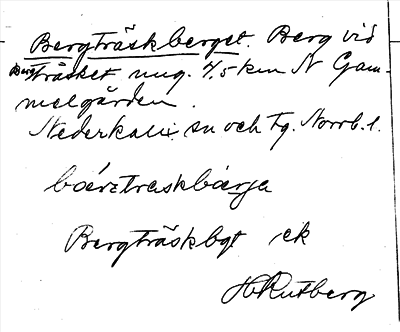 Bergträskberget. Berg vid
Bergträsket ung. 4,5 km N Gam-
melgården.
Nederkalix sn och tg. Norrb. l.
bärztraskbärja
Bergträskbgt ek
H Rutberg